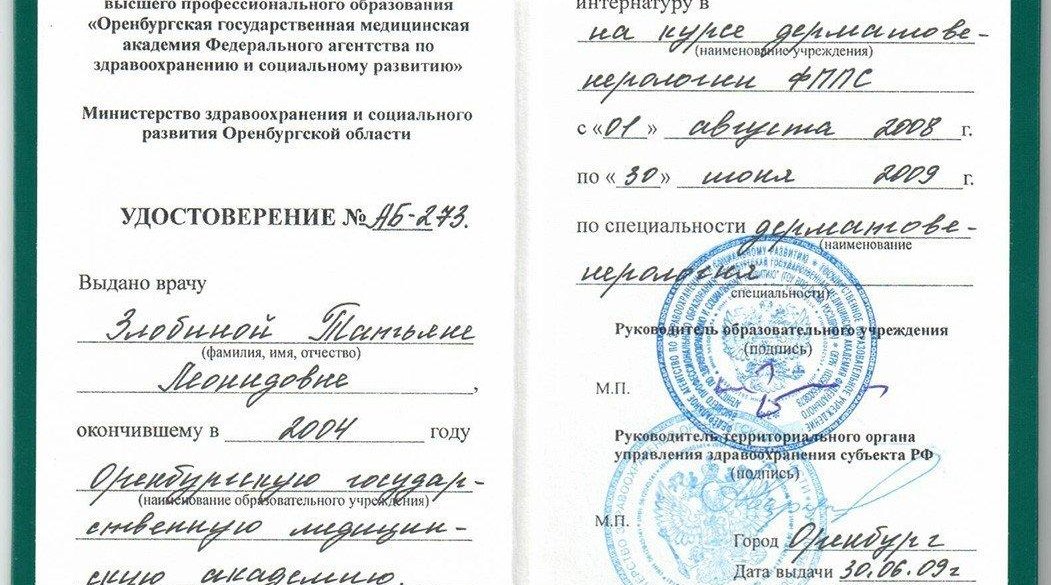 высшего профессионального образования
«Оренбургская государственная медицинская
академия Федерального агентства по
здравоохранению и социальному развитию»
Министерство здравоохранения и социального
развития Оренбургской области
УДОСТОВЕРЕНИЕ № АБ-273.
Выдано врачу
Злобиной Татьяне
(фамилия, имя, отчество)
Леонидовне,
окончившему в 2004 году
Оренбургскую государ-
(наименование образовательного учреждения)
ственную медицин-
скую академию.
интернатуру в
на курсе дерматове-
(наименование учреждения)
нерологии ФППС
с «01» августа 2008 г.
по «30» июня 2009 г.
по специальности дерматове-
(наименование
нерология
специальности)
Руководитель образовательного учреждения
(подпись)
М.П.
Руководитель территориального органа
управления здравоохранения субъекта РФ
(подпись)
М.П.
Город Оренбург
Дата выдачи 30.06.09г